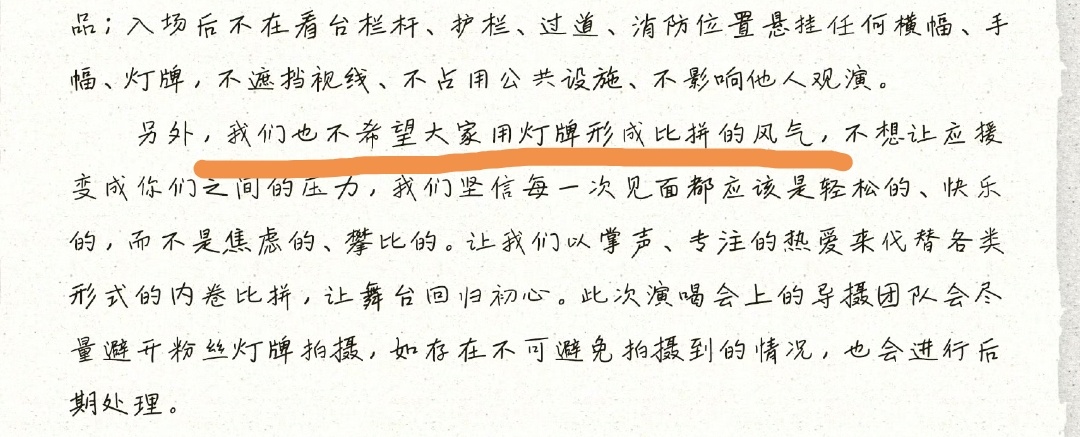 品；入场后不在看台栏杆、护栏、过道、消防位置悬挂任何横幅、手
幅、灯牌，不遮挡视线、不占用公共设施、不影响他人观演。
另外，我们也不希望大家用灯牌形成比拼的风气，不想让应援
变成你们之间的压力，我们坚信每一次见面都应该是轻松的、快乐
的，而不是焦虑的、攀比的。让我们以掌声、专注的热爱来代替各类
形式的内卷比拼，让舞台回归初心。此次演唱会上的导摄团队会尽
量避开粉丝灯牌拍摄，如存在不可避免拍摄到的情况，也会进行后
期处理。